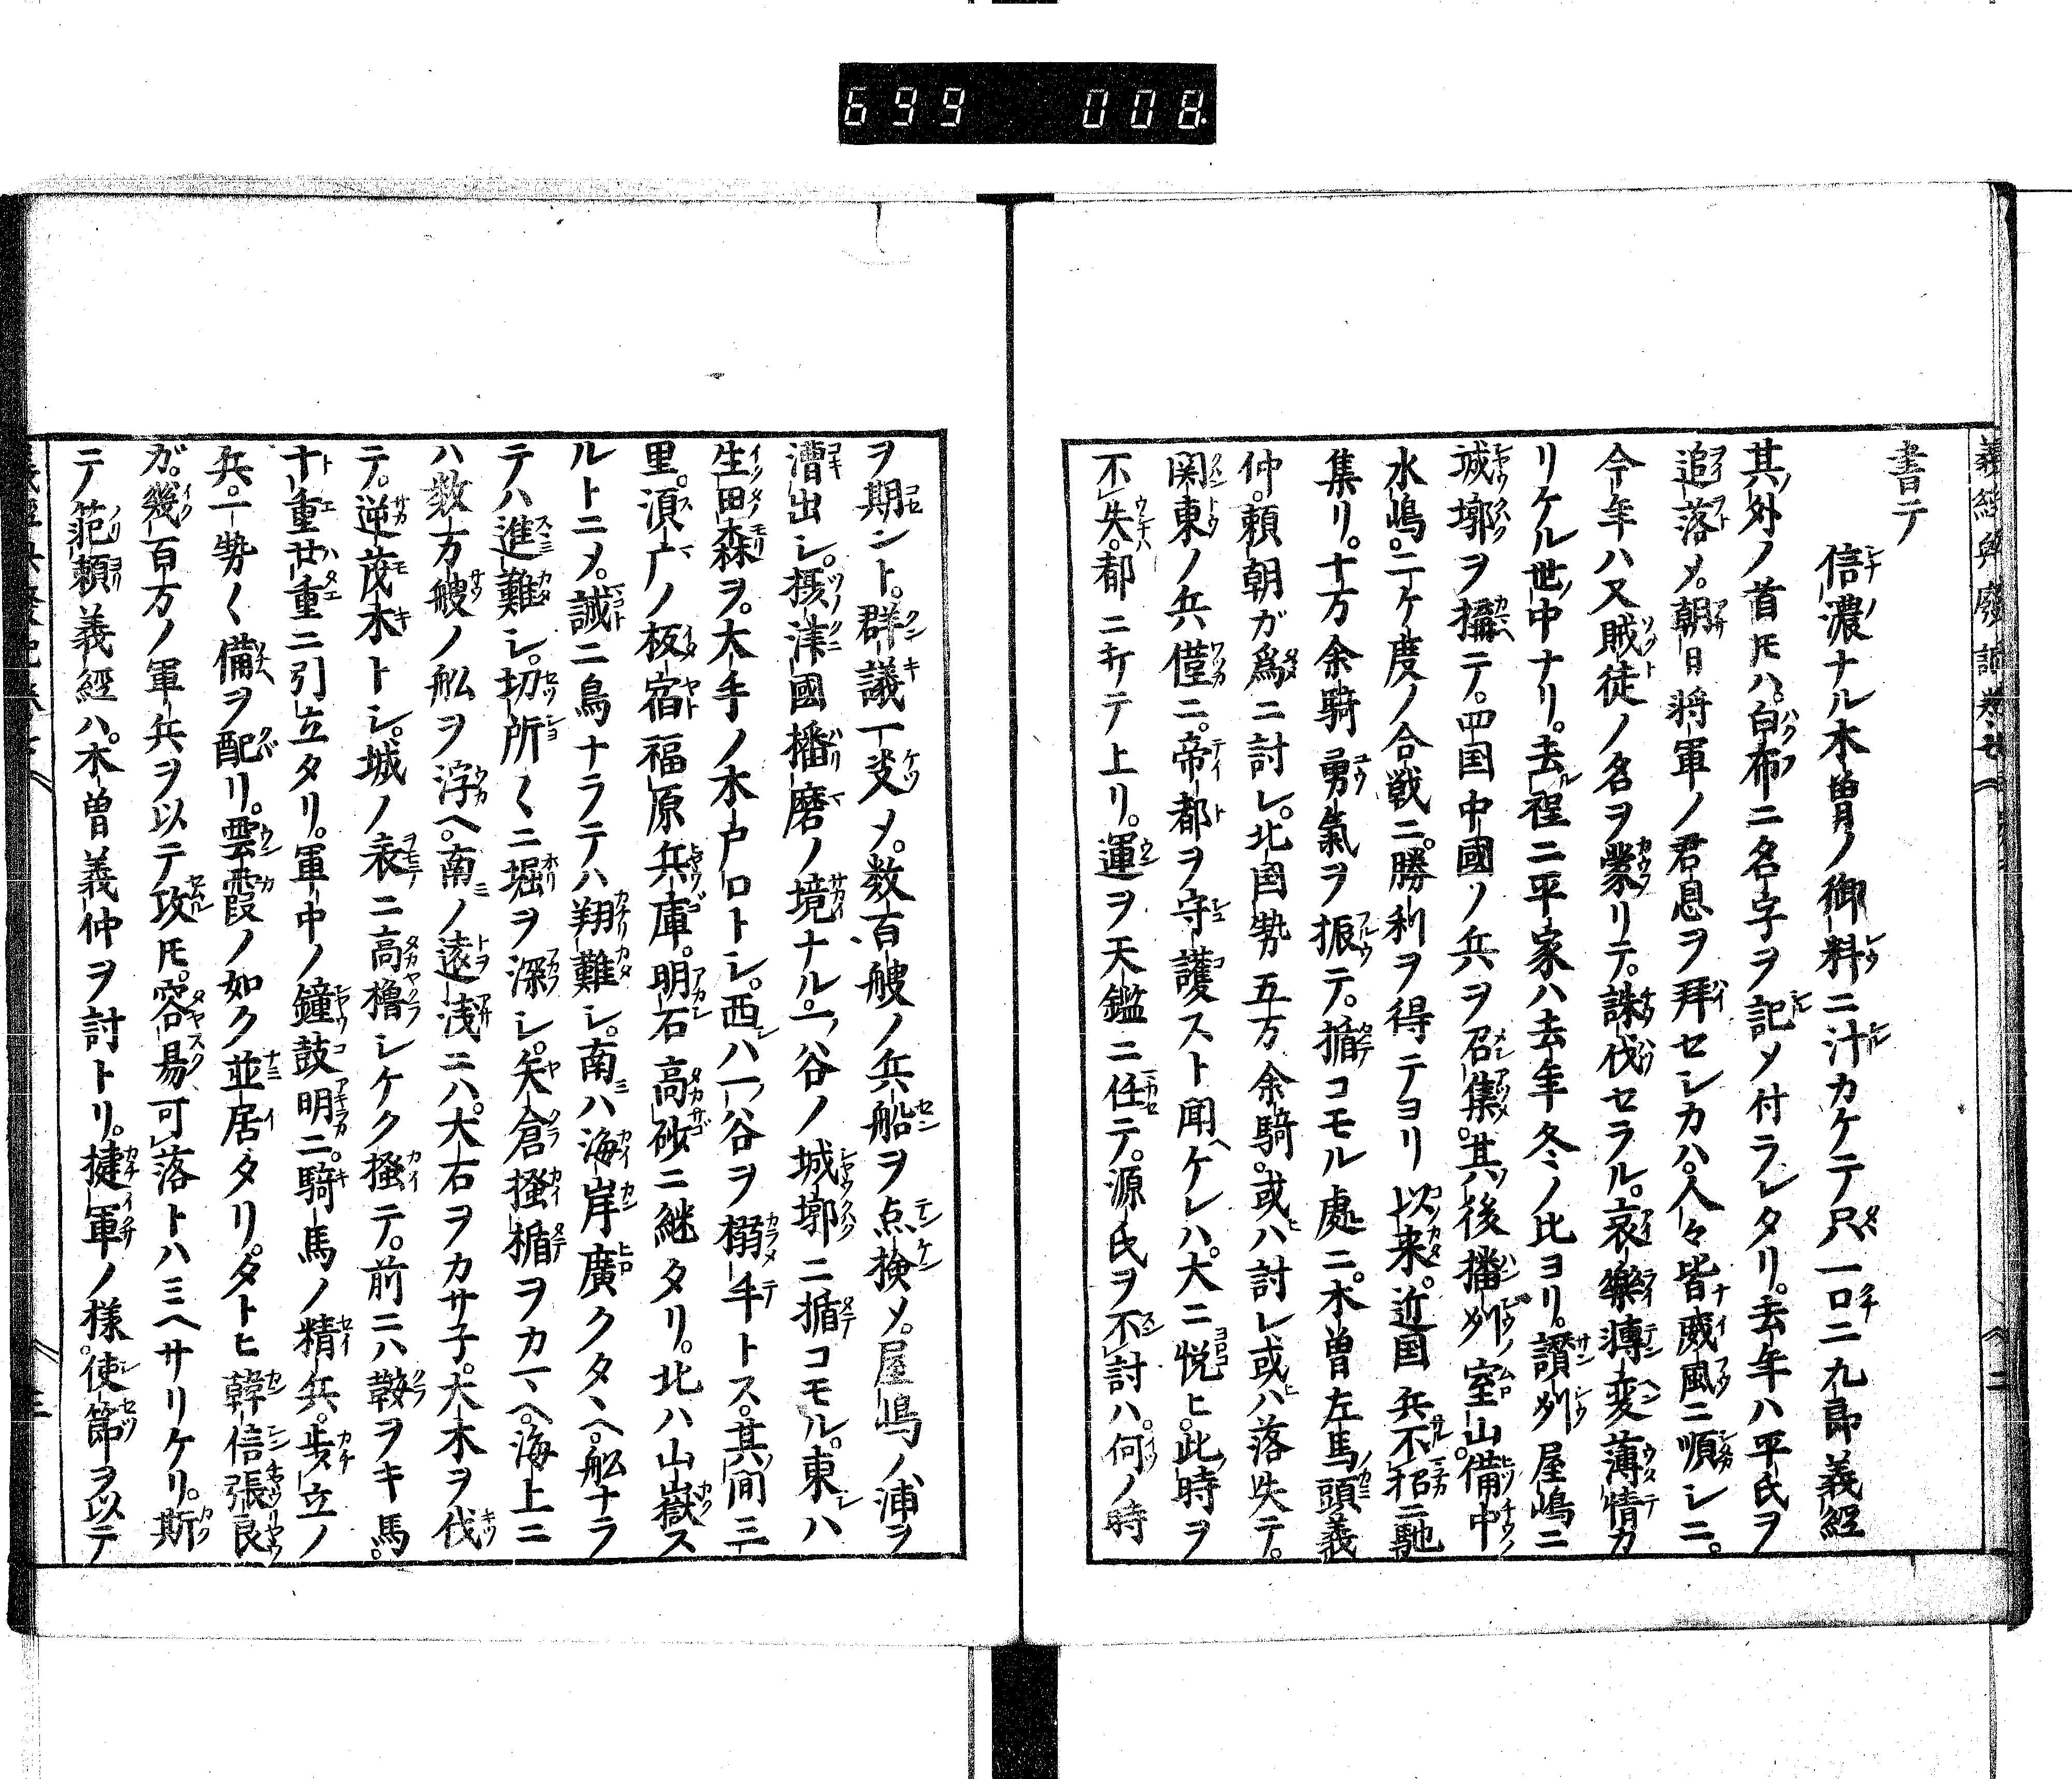 699 008
書テ
信濃ナル木曽ノ御料ニ汁カケテ只一口ニ九郎義經
其外ノ首𪜈ハ。白布ニ名字ヲ記メ付ラレタリ。去年ハ平氏ヲ
追落メ。朝日将軍ノ君恩ヲ拜セシカハ。人々皆威風ニ順シニ。
今年ハ又賊徒ノ名ヲ蒙リテ。誅伐セラル。哀樂轉変薄情カ
リケル世中ナリ。去程ニ平家ハ去年冬ノ比ヨリ。讃州屋嶋ニ
城墎ヲ搆テ。四国中國ノ兵ヲ召集。其後播州ノ室山。備中
水嶋。二ケ度ノ合戦ニ。勝利ヲ得テヨリ以来。近国兵不招ニ馳
集リ。十万余騎勇氣ヲ振テ。楯コモル處ニ。木曽左馬頭義
仲。頼朝ガ爲ニ討レ。北国勢五万余騎。或ハ討レ或ハ落失テ。
関東ノ兵僅ニ。帝都ヲ守護スト聞ケレハ。大ニ悦ヒ。此時ヲ
不失。都ニ𬼀テ上リ。運ヲ天鑑ニ任テ。源氏ヲ不討ハ。何ノ時
ヲ期ント。群議一决メ。数百艘ノ兵船ヲ点検メ。屋嶋ノ浦ヲ
漕出シ。摂津國播磨ノ境ナル。一ノ谷ノ城墎ニ楯コモル。東ハ
生田森ヲ。大手ノ木戸口トシ。西ハ一ノ谷ヲ搦手トス。其間三
里。須广ノ板宿福原兵庫。明石高砂ニ継タリ。北ハ山嶽ス
ルトニメ。誠ニ鳥ナラテハ翔難シ。南ハ海岸廣クタヽヘ。舩ナラ
テハ進難シ。切所〱ニ堀ヲ深シ。矢倉掻楯ヲカマヘ。海上ニ
ハ数万艘ノ舩ヲ浮ヘ。南ノ遠浅ニハ。大石ヲカサ子。大木ヲ伐
テ。逆茂木トシ。城ノ表ニ高櫓シケク掻テ。前ニハ鞍ヲキ馬。
十重廿重ニ引立タリ。軍中ノ鐘鼓明ニ。騎馬ノ精兵。歩立ノ
兵。一勢〱備ヲ配リ。雲霞ノ如ク並居タリ。タトヒ韓信張良
ガ。幾百万ノ軍兵ヲ以テ攻𪜈。容易可落トハミヘサリケリ。斯
テ範頼義經ハ。木曽義仲ヲ討トリ。捷軍ノ様。使節ヲ以テ